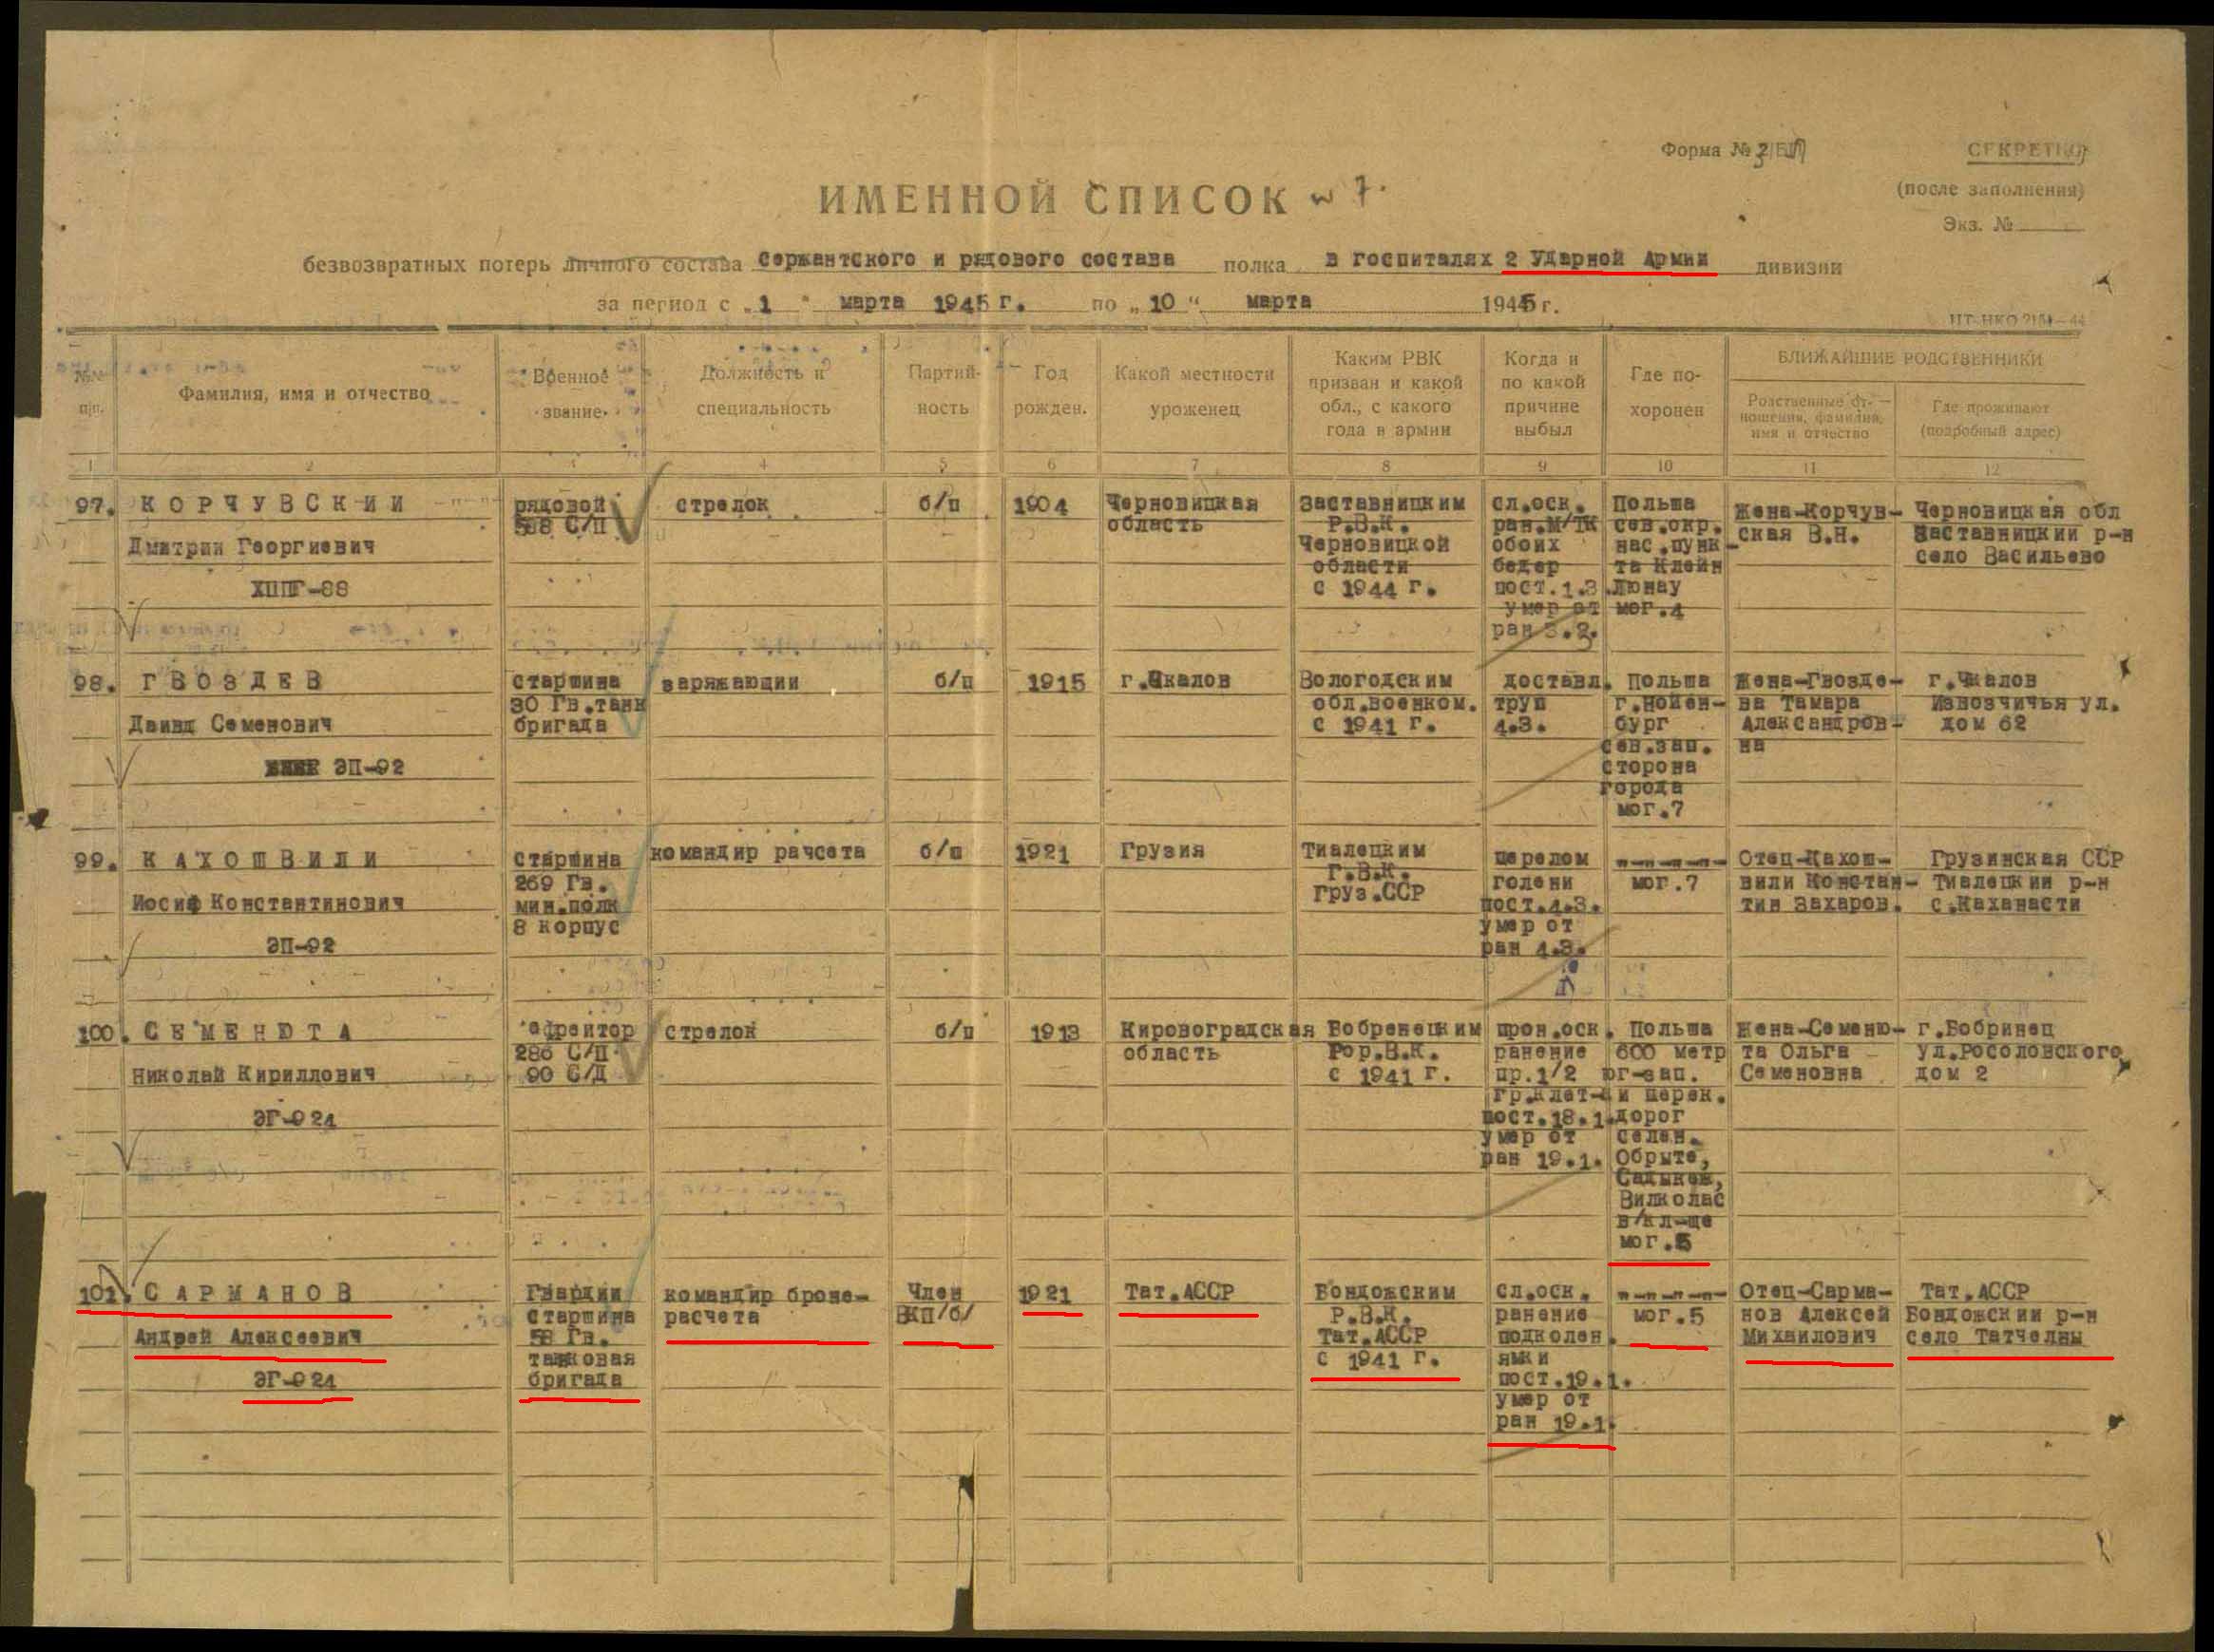 Форма №
СЕКРЕТНО
(после заполнения)
Экз. №
ИМЕННОЙ СПИСОК № 7.
безвозвратных потерь личного состава Сержантского и рядового состава полка в госпиталях 2 Ударной Армии дивизии
за период с „1" марта 1945 г. по „10" марта 1945 г.
№№ п/п.
Фамилия, имя и отчество
Военное звание
Должность и специальность
Партийность
Год рожден.
Какой местности уроженец
Каким РВК призван и какой обл., с какого года в армии
Когда и по какой причине выбыл
Где похоронен
БЛИЖАЙШИЕ РОДСТВЕННИКИ
Родственные отношения, фамилия, имя и отчество
Где проживают (подробный адрес)
1 2 3 4 5 6 7 8 9 10 11 12
97. КОРЧУВСКИЙ
Дмитрий Георгиевич
ХППГ-88
рядовой
588 С/П
стрелок
б/п
1904
Черновицкая
область
Заставницким
Р.В.К.
Черновицкой
области
с 1944 г.
сл.оск.
ран.М/ТК
обоих
бедер
пост.1.3.
умер от
ран 3.3.
Польша
сев.окр.
нас.пунк-
та Клейн
Люнау
мог.4
Жена-Корчув-
ская В.Н.
Черновицкая обл
Заставницкий р-н
село Васильево
98. ГВОЗДЕВ
Давид Семенович
ЭП-92
старшина
30 Гв.танк
бригада
заряжающий
б/п
1915
г.Чкалов
Вологодским
обл.военком.
с 1941 г.
доставл.
труп
4.3.
Польша
г.Нойен-
бург
сев.зап.
сторона
города
мог.7
Жена-Гвозде-
ва Тамара
Александров-
на
г.Чкалов
Извозчичья ул.
дом 62
99. КАХОШВИЛИ
Иосиф Константинович
ЭП-92
старшина
269 Гв.
мин.полк
8 корпус
командир расчета
б/п
1921
Грузия
Тиалецким
Г.В.К.
Груз.ССР
перелом
голени
пост.4.3.
умер от
ран 4.3.
"-"-"-"-
мог.7
Отец-Кахош-
вили Констан-
тин Захаров.
Грузинская ССР
Тиалецкий р-н
с.Каханасти
100. СЕМЕНЮТА
Николай Кириллович
ЭГ-924
ефрейтор
286 С/П
90 С/Д
стрелок
б/п
1913
Кировоградская
область
Бобренецким
Гор.В.К.
с 1941 г.
прон.оск.
ранение
пр.1/2
гр.клет-и
пост.18.1.
умер от
ран 19.1.
Польша
600 метр
юг-зап.
перек.
дорог
селен.
Обрыте,
Садыкеж,
Вилколас
в/кл-ще
мог.5
Жена-Семеню-
та Ольга
Семеновна
г.Бобринец
ул.Росоловского
дом 2
101. САРМАНОВ
Андрей Алексеевич
ЭГ-924
Гвардии
старшина
58 Гв.
танковая
бригада
командир броне-
расчета
Член
ВКП/б/
1921
Тат.АССР
Бондюжским
Р.В.К.
Тат.АССР
с 1941 г.
сл.оск.
ранение
подколен.
ямки
пост.19.1.
умер от
ран 19.1.
"-"-"-"-
мог.5
Отец-Сарма-
нов Алексей
Михайлович
Тат.АССР
Бондюжский р-н
село Татчелны